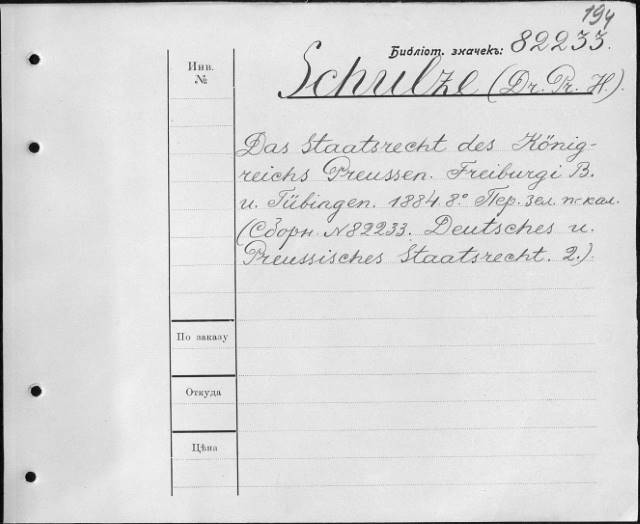 194
Библіот. значекъ: 82233.
Инв.
№
Schulze (Dr. Pr. H.).
Das Staatsrecht des König-
reichs Preussen. Freiburg i B.
u. Tübingen. 1884. 8.° Пер. зел. п-кал.
(Сборн. № 82233. Deutsches u.
Preussisches Staatsrecht. 2.).
По заказу
Откуда
Цѣна